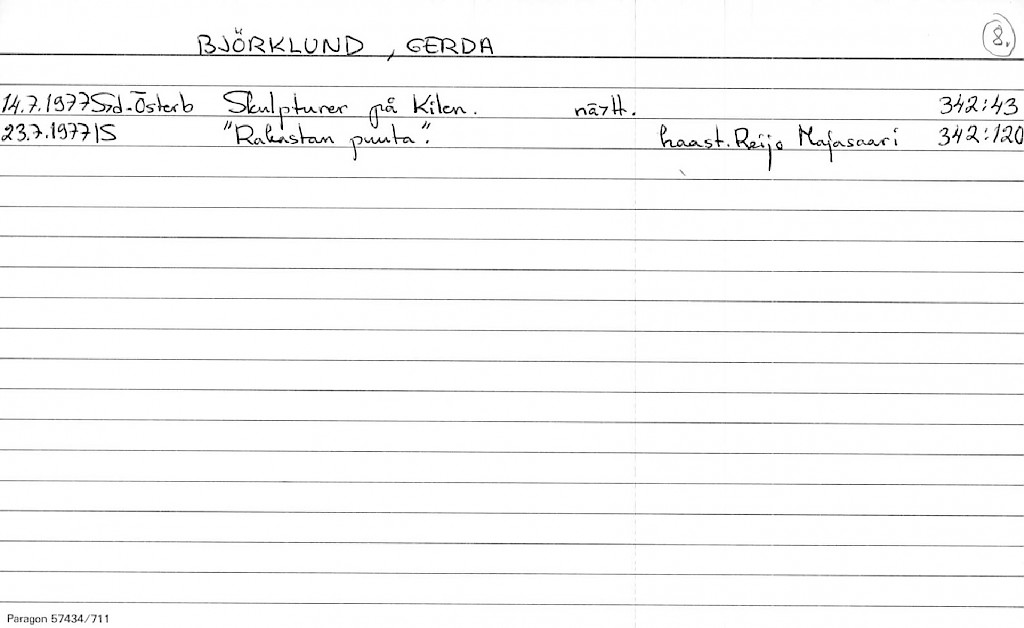 8.
BJÖRKLUND, GERDA
14.7.1977 Syd-Österb Skulpturer på Kilen. näytt. 342:43
23.7.1977 IS "Rakastan puuta". haast. Reijo Majasaari 342:120
Paragon 57434/711